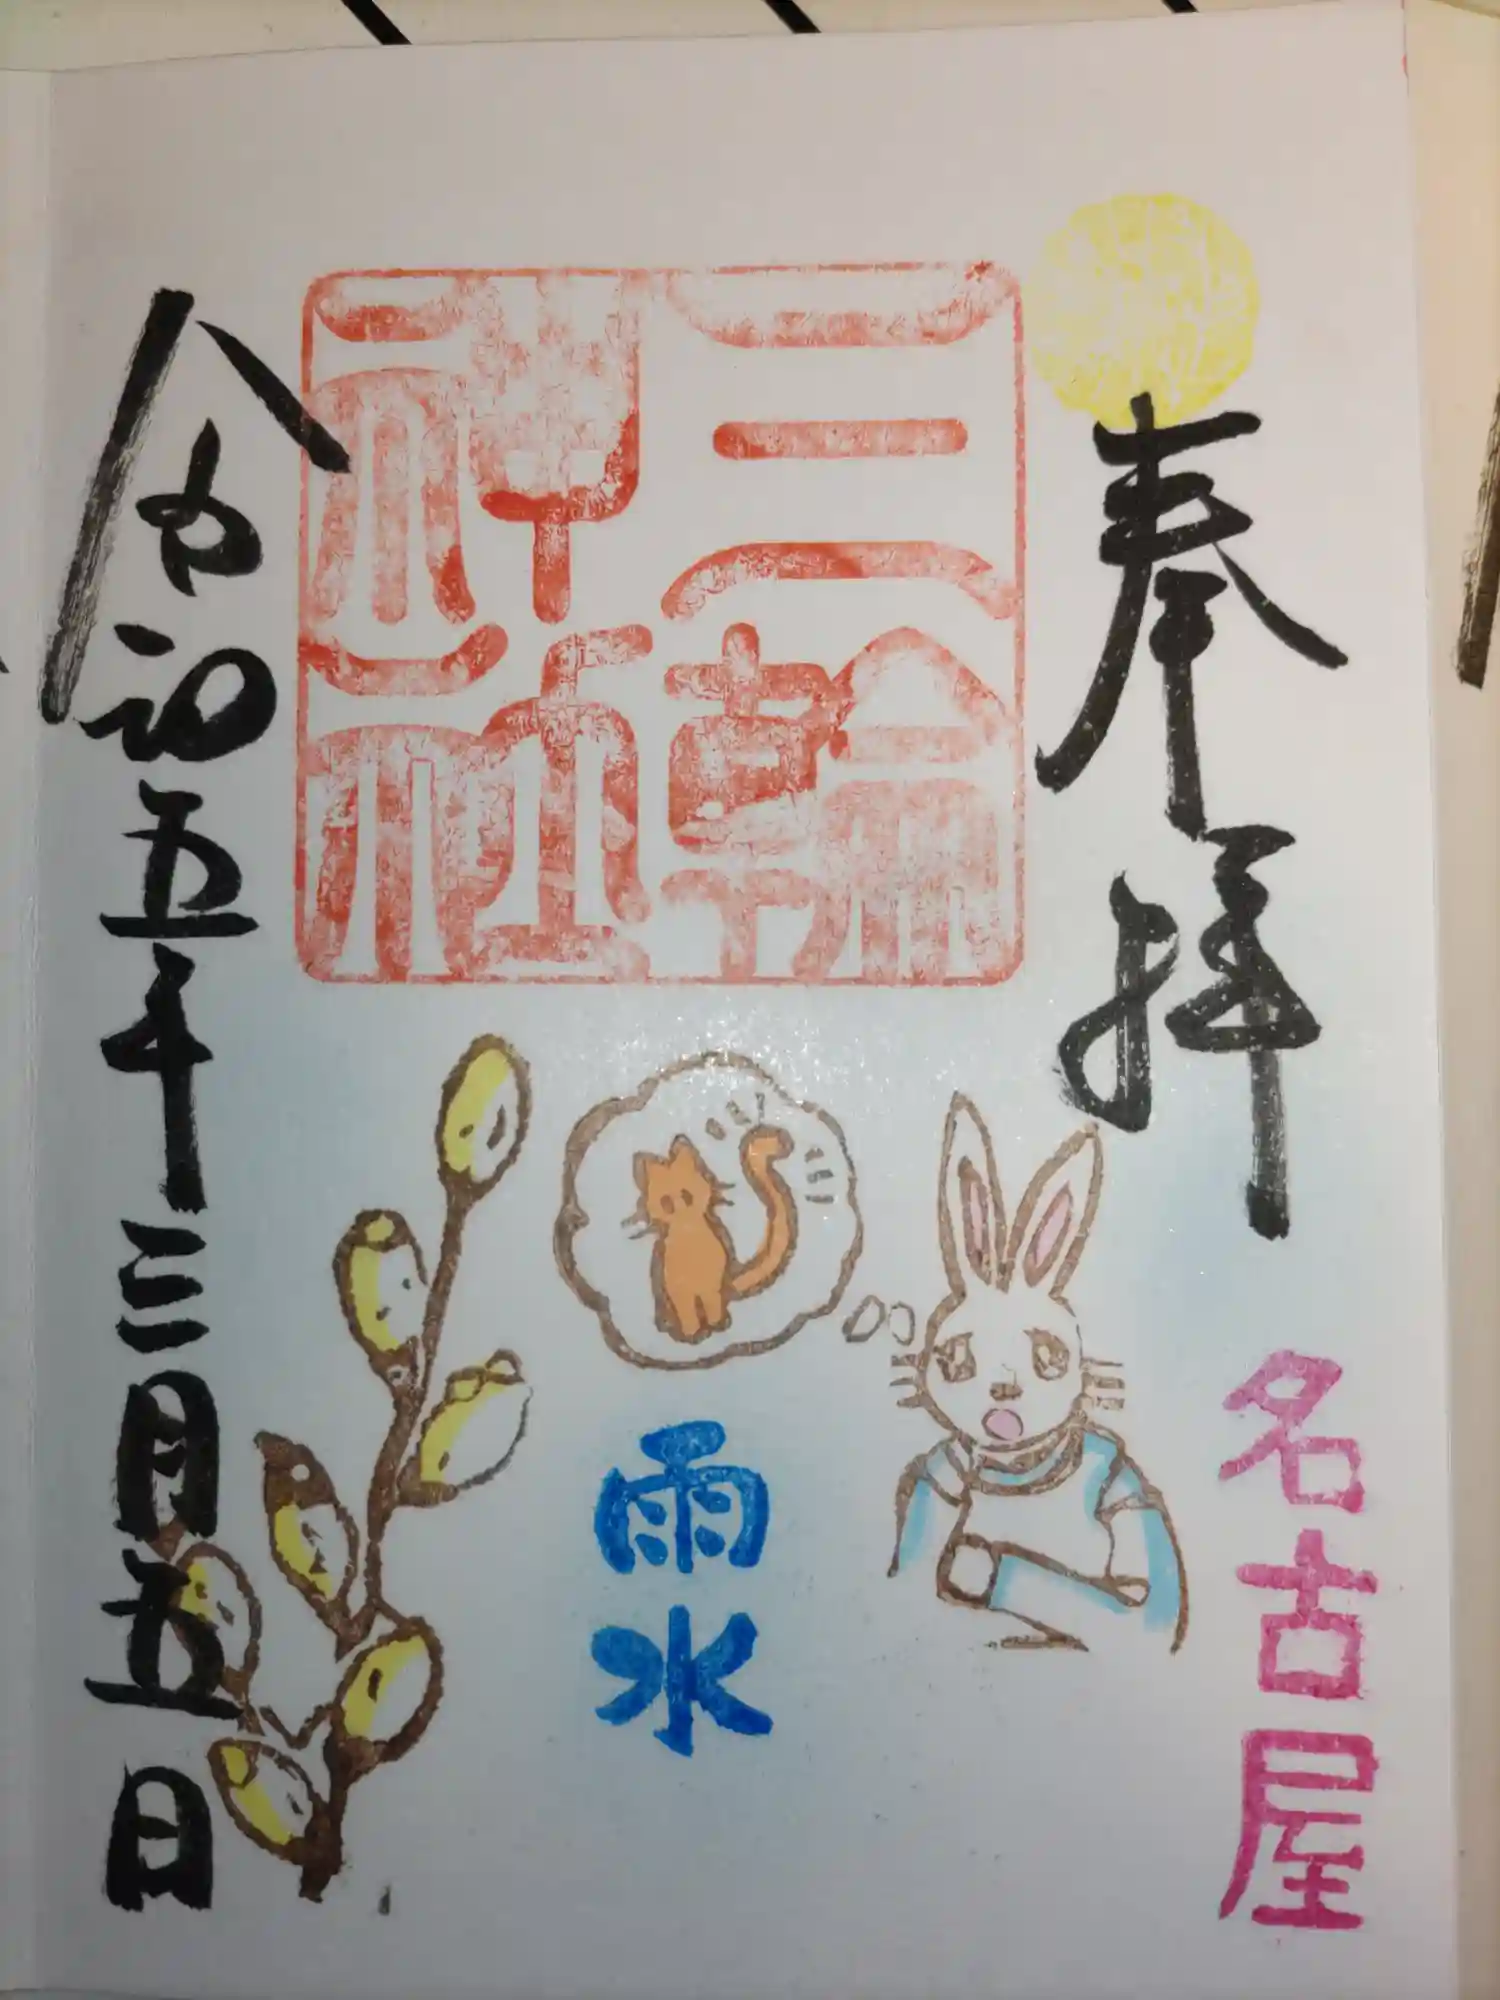 奉拝
名古屋
三輪神社
雨水
令和五年三月五日